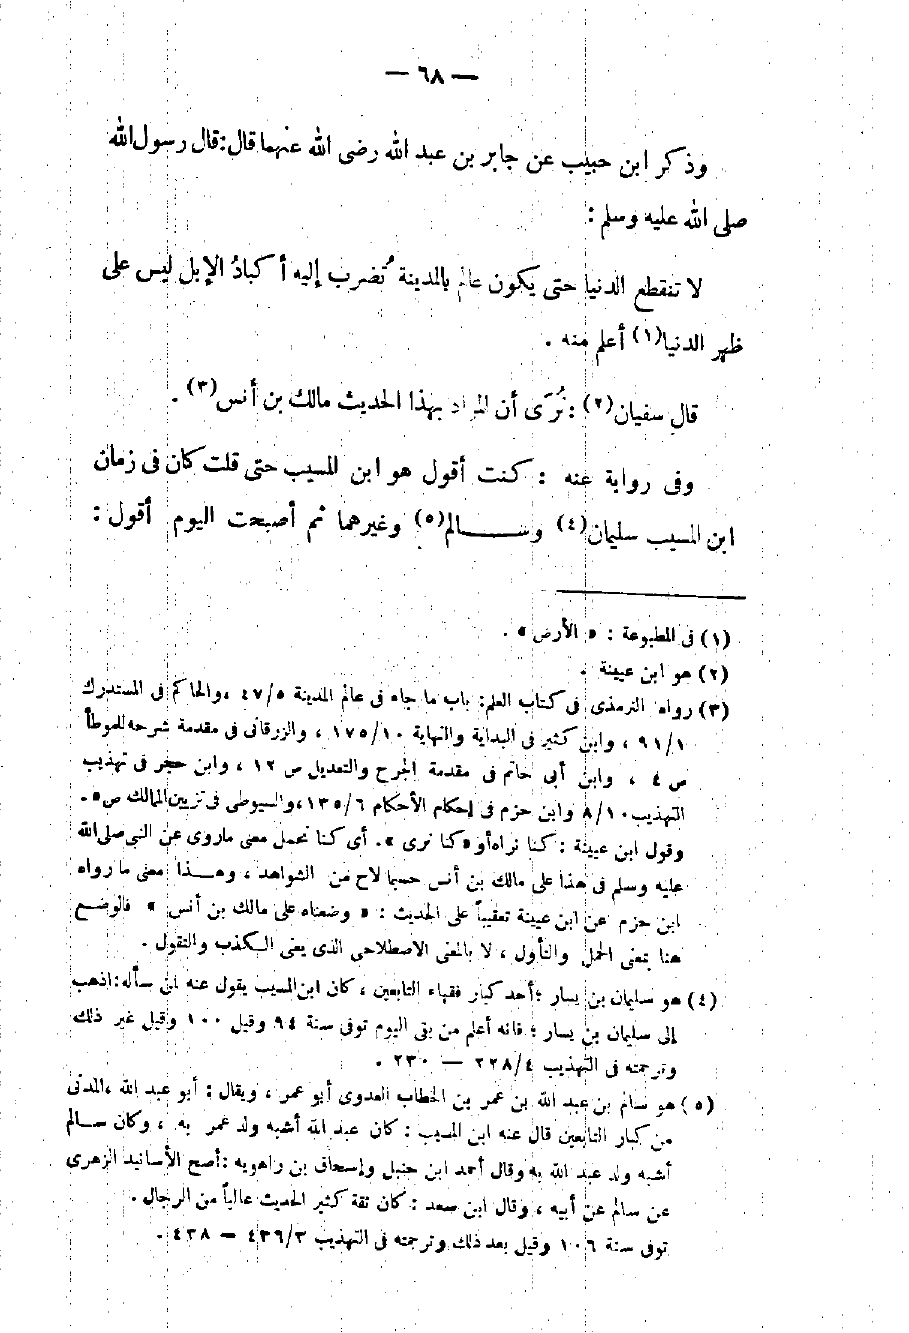 — ٦٨ —
وذكر ابن حبيب عن جابر بن عبد الله رضى الله عنهما قال: قال رسول الله
صلى الله عليه وسلم :
لا تنقطع الدنيا حتى يكون عالم بالمدينة تُضرب إليه أكبادُ الإبل ليس على
ظهر الدنيا(١) أعلم منه .
قال سفيان(٢) : نُرَى أن المراد بهذا الحديث مالك بن أنس(٣) .
وفى رواية عنه : كنت أقول هو ابن المسيب حتى قلت كان فى زمان
ابن المسيب سليمان(٤) وســـالم(٥) وغيرهما ثم أصبحت اليوم أقول :
(١) فى المطبوعة : « الأرض » .
(٢) هو ابن عيينة .
(٣) رواه الترمذى فى كتاب العلم: باب ما جاء فى عالم المدينة ٤٧/٥ ،والحاكم فى المستدرك
٩١/١ ، وابن كثير فى البداية والنهاية ١٧٥/١٠ ، والزرقانى فى مقدمة شرحه للموطأ
ص ٤ ، وابن أبى حاتم فى مقدمة الجرح والتعديل ص ١٢ ، وابن حجر فى تهذيب
التهذيب ٨/١٠ وابن حزم فى إحكام الأحكام ١٣٥/٦ ،والسيوطى فى تزيين الممالك ص٥.
وقول ابن عيينة : كنا نراه أو «كنا نرى ». أى كنا نحمل معنى ماروى عن النبى صلى الله
عليه وسلم فى هذا على مالك بن أنس حسبما لاح من الشواهد ، وهــذا معنى ما رواه
ابن حزم عن ابن عيينة تعقيباً على الحديث : « وضعناه على مالك بن أنس » فالوضــع
هنا بمعنى الحمل والتأول ، لا بالمعنى الاصطلاحى الذى يعنى الكذب والتقول .
(٤) هو سليمان بن يسار ؛أحد كبار فقهاء التابعين ، كان ابن المسيب يقول عنه لمن سأله: اذهب
إلى سليمان بن يسار ؛ فانه أعلم من بقى اليوم توفى سنة ٩٤ وقيل ١٠٠ وقيل غير ذلك
وترجمته فى التهذيب ٢٢٨/٤ — ٢٣٠ .
(٥) هو سالم بن عبد الله بن عمر بن الخطاب العدوى أبو عمر ، ويقال : أبو عبد الله ،المدنى
من كبار التابعين قال عنه ابن المسيب : كان عبد الله أشبه ولد عمر به ، وكان ســالم
أشبه ولد عبد الله به وقال أحمد ابن حنبل وإسحاق بن راهويه : أصح الأسانيد الزهرى
عن سالم عن أبيه ، وقال ابن سعد : كان ثقة كثير الحديث عالياً من الرجال .
توفى سنة ١٠٦ وقيل بعد ذلك وترجمته فى التهذيب ٤٣٦/٣ — ٤٣٨ .